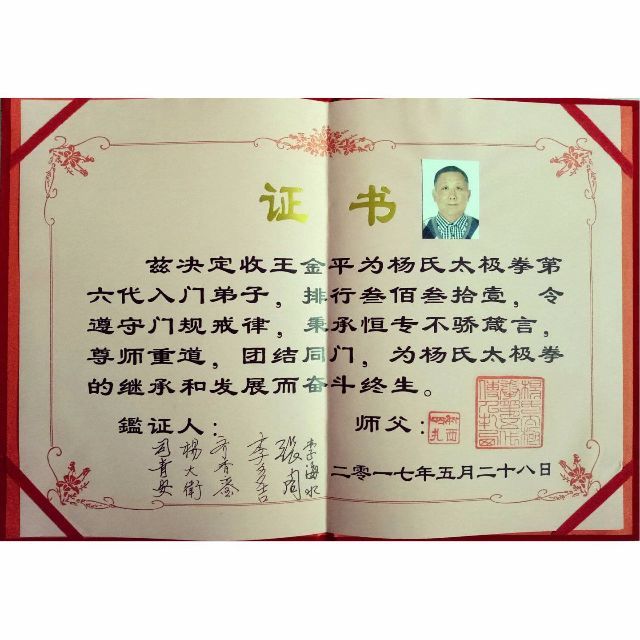 证书
兹决定收王金平为杨氏太极拳第
六代入门弟子，排行叁佰叁拾壹，令
遵守门规戒律，秉承恒专不骄箴言，
尊师重道，团结同门，为杨氏太极拳
的继承和发展而奋斗终生。
鑑证人：
师父：
杨大衛
张周
李海水
二零一七年五月二十八日